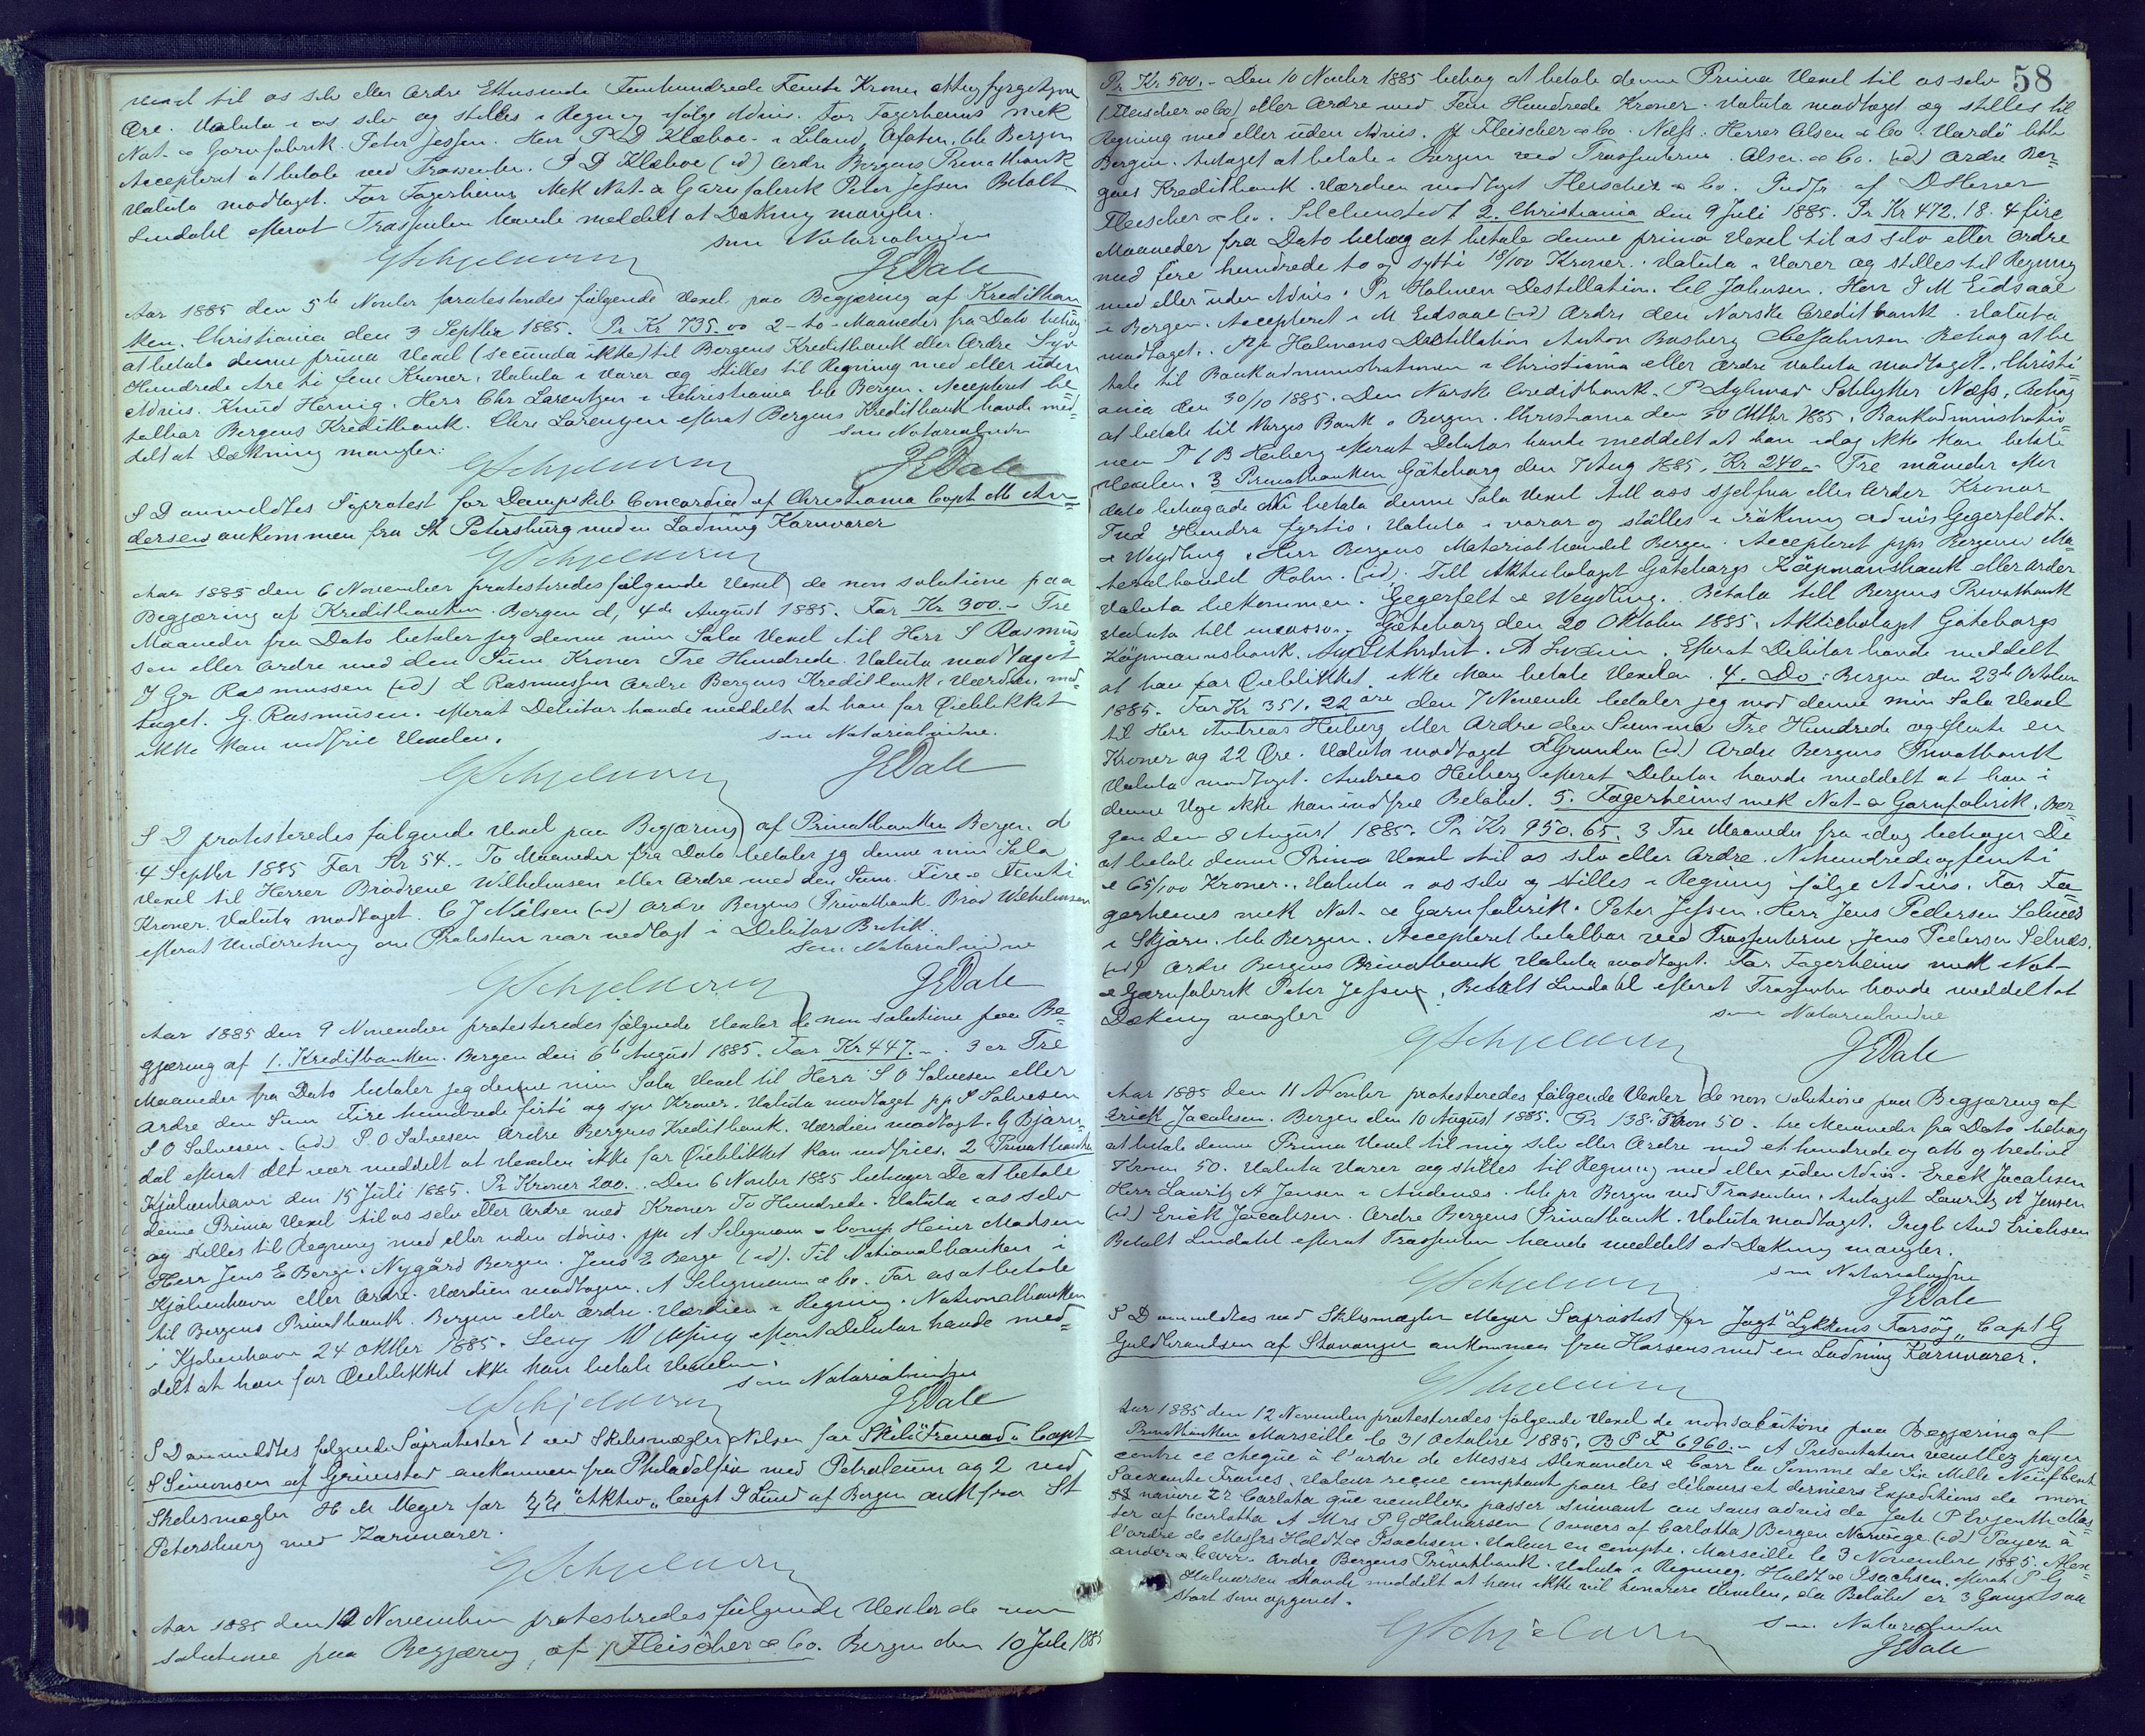 Vexel til os selv eller Ordre Ettusinde Femhundrede Femti Kroner otteogfyrgetyve
Øre. Valuta i os selv og stilles i Regning ifølge Advis. For Fagerheims mek
Not- & Garnfabrik. Peter Jessen. Herr P D Klæboe i Leland, Ofoten. ble Bergen
Accepteret at betale ved Trassenten. P D Klæboe (id) Ordre Bergens Privatbank
Valuta modtaget. For Fagerheims Mek Not- & Garnfabrik Peter Jessen Betalt
Lindahl efterat Trassenten havde meddelt at Dækning mangler.
som Notarialvidne
GSchjelderup
JEDale
Aar 1885 den 5te Novbr protesteredes følgende Vexel paa Begjæring af Kreditban
ken. Christiania den 3 Septbr 1885. Pr Kr 735.00 2 - to - Maaneder fra Dato behag
at betale denne prima Vexel (secunda ikke) til Bergens Kreditbank eller Ordre Syv
Hundrede tre ti fem Kroner, Valuta i Varer og stilles til Regning med eller uden
Advis. Knud Hernig. Herr Chr Lorentzen i Christiania ble Bergen. Accepteret be
talbar Bergens Kreditbank. Chr Lorentzen efterat Bergens Kreditbank havde med=
delt at Dækning mangler:
som Notarialvidne
GSchjelderup
JEDale
S D anmeldtes Søprotest for Dampskib Concordia af Christiania Capt M An=
dersen ankommen fra St Petersburg med en Ladning Kornvarer
GSchjelderup
Aar 1885 den 6 November protesteredes følgende Vexel de non solutione paa
Begjæring af Kreditbanken. Bergen d, 4de August 1885. For Kr 300.- Tre
Maaneder fra Dato betaler jeg denne min Sola Vexel til Herr S Rasmus=
sen eller Ordre med den Sum Kroner Tre Hundrede. Valuta modtaget
J Gr Rasmussen (id) L Rasmussen Ordre Bergens Kreditbank. Værdien mod=
taget. G. Rasmusen. efterat Debitor havde meddelt at han for Øieblikket
ikke kan indfrie Vexelen.
som Notarialvidne.
GSchjelderup
JEDale
S D protesteredes følgende Vexel paa Begjæring af Privatbanken Bergen d
4 Septbr 1885 For Kr 54.- To Maaneder fra Dato betaler jg denne min Sola
Vexel til Herrer Brødrene Wilhelmsen eller Ordre med den Sum. Fire & Femti
Kroner. Valuta modtaget. C J Nilsen (id) Ordre Bergens Privatbank. Brød Wilhelmsen
efterat Underretning om Protesten var nedlagt i Debitors Butik.
som Notarialvidne
GSchjelderup
JEDale
Aar 1885 den 9 November protesteredes følgende Vexler de non solutione paa Be=
gjæring af 1. Kreditbanken. Bergen den 6te August 1885. For Kr 447.-. 3 er Tre
Maaneder fra Dato betaler jeg denne min Sola Vexel til Herr S O Salvesen eller
Ordre den Sum Fire hundrede firti og syv Kroner. Valuta modtaget pp S Salvesen
S O Salvesen. (id) S O Salvesen Ordre Bergens Kreditbank. Værdien modtaget. G Bjørn=
dal efterat det var meddelt at Vexelen ikke for Øieblikket kan indfries. 2 Privatbanken
Kjøbenhavn den 15 Juli 1885. Pr Kroner 200. Den 6 Novbr 1885 behager De at betale
denne Prima Vexel til os selv eller Ordre med Kroner To Hundrede Valuta i os selv
og stilles til Regning med eller uden Advis. pp A Seligmann & Comp Heinr Madsen
Herr Jens E Berge. Nygård Bergen. Jens E Berge (id). Til Nationalbanken i
Kjøbenhavn eller Ordre. Værdien modtagen. A Seligmann & Co. For os at betale
til Bergens Privatbank. Bergen eller Ordre. Værdien i Regning. Nationalbanken
i Kjøbenhavn 24 oktber 1885. Levy efterat Debitor havde med=
delt at han for Øieblikket ikke kan betale Vexelen.
som Notarialvidne
GSchjelderup
JEDale
S D anmeldtes følgende Søprotester 1 ved Skibsmægler Nilsen for Skib "Fremad" Capt
S Simonsen af Grimstad ankommen fra Philadelfia med Petroleum og 2 ved
Skibsmægler H M Meyer for "Aktiv" Capt J Lund af Bergen ank fra St
Petersburg med Kornvarer.
GSchjelderup
Aar 1885 den 10 November protesteredes følgende Vexler de non
solutione paa Begjæring af 1 Fleischer & Co. Bergen den 10 Juli 1885
58
Pr Kr 500.- Den 10 Novbr 1885 behag at betale denne Prima Vexel til os selv
(Fleischer & Co) eller Ordre med Fem Hundrede Kroner. Valuta modtaget og stilles til
Regning med eller uden Advis. pp Fleischer & Co. Næss. Herrer Olsen & Co. Vardø ble
Bergen. Antaget at betale i Bergen ved Trassenterne. Olsen & Co. (id) Ordre Ber=
gens Kreditbank. Værdien modtaget Fleischer & Co. Indfr. af D Herrer
Fleischer & Co. 2. Christiania den 9 Juli 1885. Pr Kr 472.18. 4 fire
Maaneder fra Dato behag at betale denne prima Vexel til os selv eller Ordre
med fire hundrede to og sytti 18/100 Kroner. Valuta i Varer og stilles til Regning
med eller uden Advis. Pr Holmen Destillation. Cl Johnsen. Herr I M Eidsaae
i Bergen. Accepteret I M Eidsaae (id) Ordre den Norske Creditbank. Valuta
modtaget. pp Holmens Destillation Anton Busberg Cl Johnsen. Behag at be
tale til Bankadministrationen i Christiania eller Ordre Valuta modtaget. Christi=
ania den 30/10 1885. Den Norsk Creditbank. P Dybwad Schlytter Næss, Behag
at betale til Norges Bank i Bergen. Christiania den 30 Oktbr 1885. Bankadministratio=
nen T C B Heiberg efterat Debitor havde meddelt at han idag ikke kan betale
Vexelen. 3 Privatbanken Göteborg den 7 Aug 1885. Kr 240.- Tre måneder efter
dato behagade Ni betala denna Sola Vexel till oss sjelfva eller Order Kronor
Två Hundra fyrtio. Valuta i varor og ställes i räkning advis Gegerfeldt
& Weydling. Herr Bergens Materialhandel Bergen. Accepteret pr pr Bergens Ma=
terialhandel Holm. (id). Till Aktiebolaget Göteborgs Köpmansbank eller order
Valuta bekommen. Gegerfelt & Weydling. Betala till Bergens Privatbank
Valuta till incasso. Göteborg den 20 Oktober 1885. Aktiebolaget Göteborgs
Köpmannsbank. Efterat Debitor havde meddelt
at han for Øieblikket ikke kan betale Vexelen. 4. Do: Bergen den 23de October
1885. For Kr 351.22 øre den 7 November betaler jeg mod denne min Sola Vexel
til Herr Andreas Heiberg eller Ordre den Summa Tre Hundrede og femti en
Kroner og 22 Øre. Valuta modtaget (id) Ordre Bergens Privatbank
Valuta modtaget. Andreas Heiberg efterat Debitor havde meddelt at han i
denne Uge ikke kan indfrie Beløbet. 5. Fagerheims mek Not- & Garnfabrik. Ber=
gen den 8 August 1885. Pr Kr 950.65. 3 Tre Maaneder fra idag behager De
at betale denne Prima Vexel til os selv eller Ordre. Nihundrede og femti
& 65/100 Kroner. Valuta i os selv og stilles i Regning ifølge Advis. For Fa=
gerheimes mek Not- & Garnfabrik. Peter Jessen. Herr Jens Pedersen Selnes
i Skjærv. ble Bergen. Accepteret betalbar ved Trassenterne Jens Pedersen Selnes.
(id) Ordre Bergens Privatbank Valuta modtaget. For Fagerheims mek Not-
& Garnfabrik Peter Jessen, Betalt Lindahl efterat Trassenten havde meddelt at
Dækning mangler
som Notarialvidne
GSchjelderup
JEDale
Aar 1885 den 11 Novbr protesteredes følgende Vexler de non solutione paa Begjæring af
Erick Jacobsen. Bergen den 10 August 1885. Pr 138 Kron 50. tre Maaneder fra Dato behag
at betale denne Prima Vexel til mig selv eller Ordre med et hundrede og otte og tredive
Kroner 50. Valuta Varer og stilles til Regning med eller uden Advis. Erick Jacobsen
Herr Lauritz A Jensen i Andenæs. ble pr Bergen ved Trasenten. Antaget Lauritz A Jensen
(id) Erick Jacobsen. Ordre Bergens Privatbank. Valuta modtaget. Ingb And Erichsen
Betalt Lindahl efterat Trassenten havde meddelt at Dækning mangler.
som Notarialvidne
GSchjelderup
JEDale
S D anmeldtes ved Skibsmægler Meyer Søprotest for Jagt "Lykkens Forsøg" Capt G
Guldbrandsen af Stavanger ankommen fra Horsens med en Ladning Kornvarer.
GSchjelderup
Aar 1885 den 12 November protesteredes følgende Vexel de non solutione paa Begjæring af
Privatbanken Marseille le 31 Octobre 1885. B P F 6960.- A Presentation veuillez payer
contre ce cheque à l'ordre de Messrs Alexander & Carr la Somme de Six Mille Neuf Cent
Soixante Francs. Valeur reçue comptant pour les débours et derniers Expeditions de mon
navire Carlota que veuillez passer suivant ou sans advis de Mas=
ter af Carlotta A Mrs P G Halvorsen (Owners of Carlotta) Bergen Norvege (id) Payez à
l'ordre de Messrs Holdt & Isachsen. Valeur en compte. Marseille le 3 Novembre 1885. Alex=
ander & Carr. Ordre Bergens Privatbank. Valuta i Regning. Holdt & Isachsen. efterat P G
Halvorsen havde meddelt at han ikke vil honorere Vexelen, da Beløbet er 3 Gange saa
stort som opgivet.
som Notarialvidne
GSchjelderup
JEDale